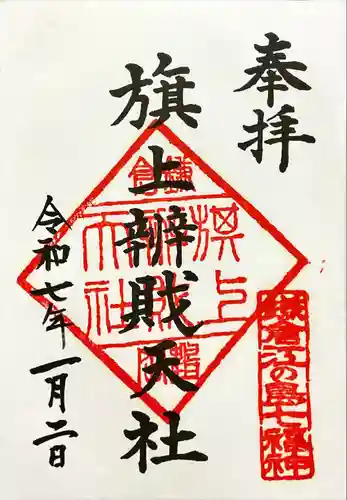 奉拝
旗上辨財天社
令和七年一月二日
鎌倉
旗上
辨財
天社
鎌倉江の島七福神